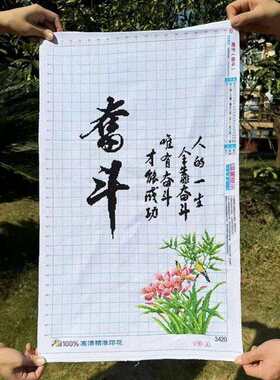 奋斗
人的一生
全靠奋斗
唯有奋斗
才能成功
100%高清精准印花
3420